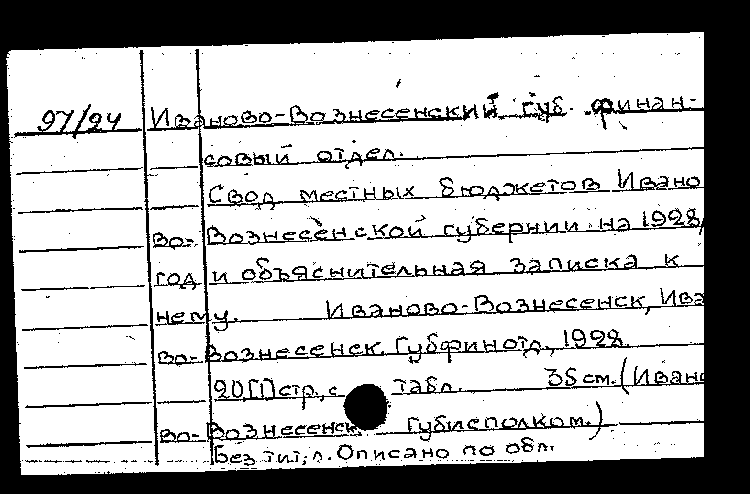 97/24 Иваново-Вознесенский губ. финан-
совый отдел.
Свод местных бюджетов Ивано
во- Вознесенской губернии на 1928/
год и объяснительная записка к
нему. Иваново-Вознесенск, Ива
во-Вознесенск. Губфинотд., 1928.
20[1]стр., с табл. 35 см. (Ивано
во-Вознесенск Губисполком.)
Без тит. л. Описано по обл.